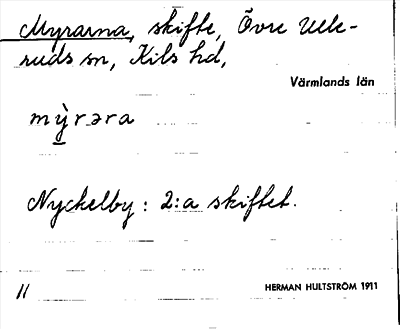 Myrarna, skifte, Övre Ulle-
ruds sn, Kils hd,
Värmlands län
mỳrəra
Nyckelby: 2:a skiftet.
11
HERMAN HULTSTRÖM 1911